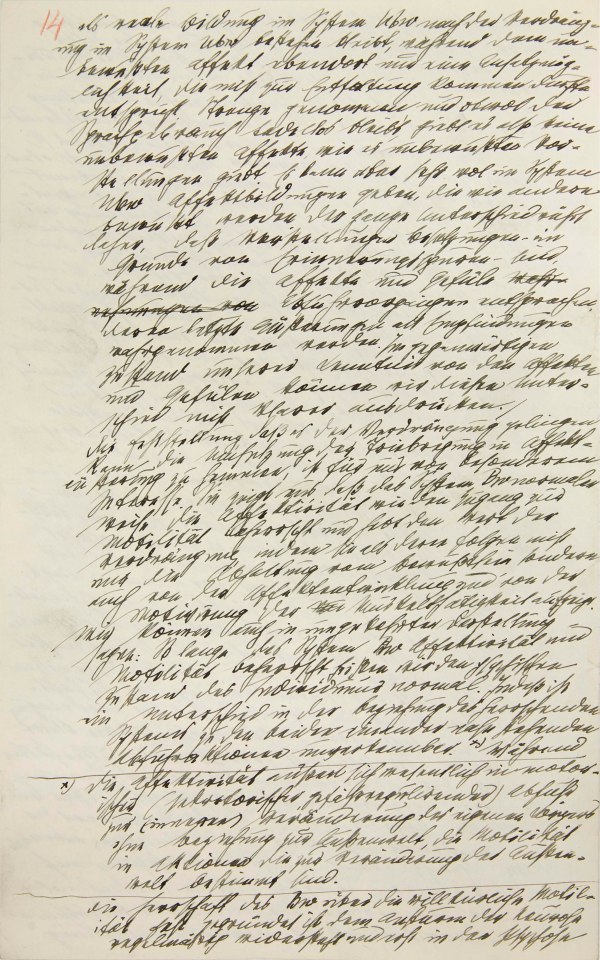 14
als reale Bildung im System Ubw nach der Verdrän-
gung im System Ubw bestehen bleibt, während dem un-
bewußten Affekt ebendort nur eine Ansatzmög-
lichkeit, die nicht zur Entfaltung kommen durfte
entspricht. Strenge genommen und obwol der
Sprachgebrauch tadellos bleibt giebt es also keine
unbewußten Affekte wie es unbewußte Vor-
stellungen gibt. Es kann aber sehr wol im System
Ubw Affektbildungen geben, die wie andere
bewußt werden. Der ganze Unterschied rührt
daher, daß Vorstellungen Besetzungen – im
Grunde von Erinnerungsspuren – sind
während die Affekte und Gefüle
Abfuhrvorgängen entsprechen,
deren letzte Äußerungen als Empfindungen
wahrgenommen werden. Im gegenwärtigen
Zustand unserer Kenntnis von den Affekten
und Gefülen können wir diesen Unter-
schied nicht klarer ausdrücken.
Die Feststellung daß es der Verdrängung gelingen
kann, die Umsetzung der Triebregung in Affekt-
äußerung zu hemmen, ist für uns von besonderem
Interesse. Sie zeigt uns, daß das System Bw normaler
weise die Affektivität wie den Zugang zur
Motilität beherrscht und hebt den Wert der
Verdrängung, indem sie als deren Folgen nicht
nur die Abhaltung vom Bewußtsein sondern
auch von der Affektentwicklung und von der
Motivirung der Muskelthätigkeit aufzeigt.
Wir können auch in umgekehrter Darstellung
sagen: So lange das System Bw Affektivität und
Motilität beherrscht, heißen wir den psychischen
Zustand des Individuums normal. Indeß ist
ein Unterschied in der Beziehung des herrschenden
Systems zu den beiden einander nahe stehenden
Abfuhraktionen unverkennbar. x) Während
x) Die Affektivität äußert sich wesentlich in motor-
ischer (sekretorischer, gefäßregulirender) Abfuhr
zur (inneren) Veränderung des eigenen Körpers
ohne Beziehung zur Außenwelt, die Motilität
in Aktionen die zur Veränderung der Außen-
welt bestimmt sind.
die Herrschaft des Bw über die willkürliche Motil-
ität fest gegründet ist, dem Ansturm der Neurose
regelmäßig widersteht und erst in der Psychose